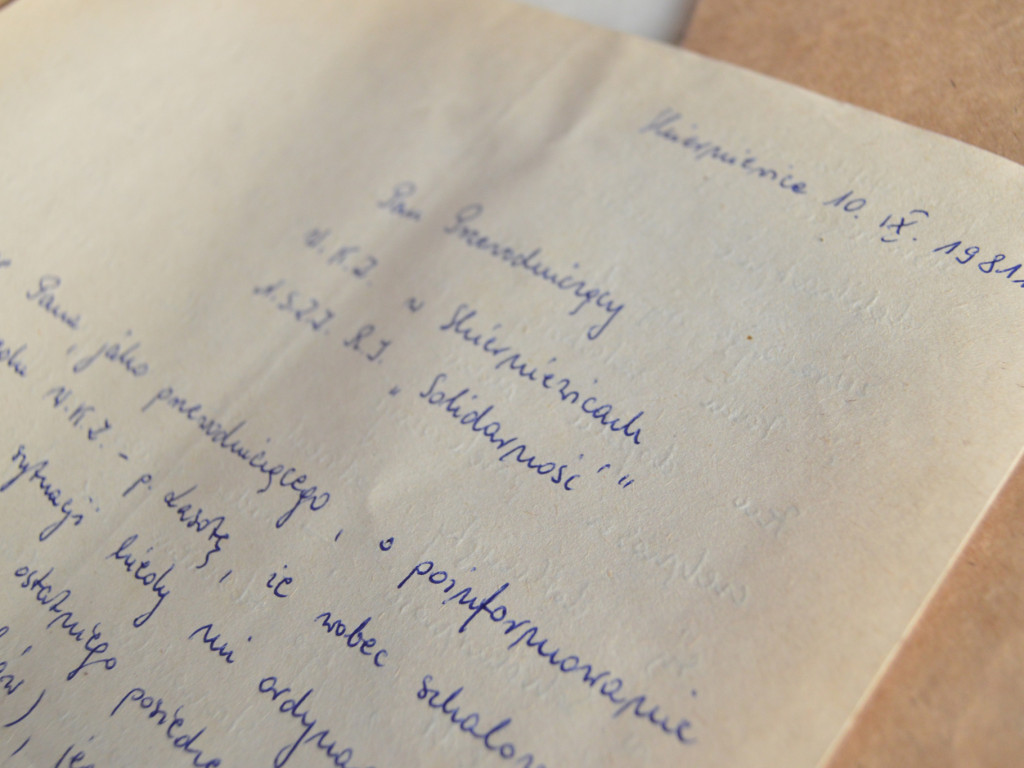 Skierniewice 10. IX. 1981r
Pan Przewodniczący
W.K.Z. w Skierniewicach
N.S.Z.Z. R.I. „Solidarność"
Pana, jako przewodniczącego, o poinformowanie
W.K.Z. - p. Lasotę, że wobec
sytuacji kiedy ni ordyna
ostatniego posiedze